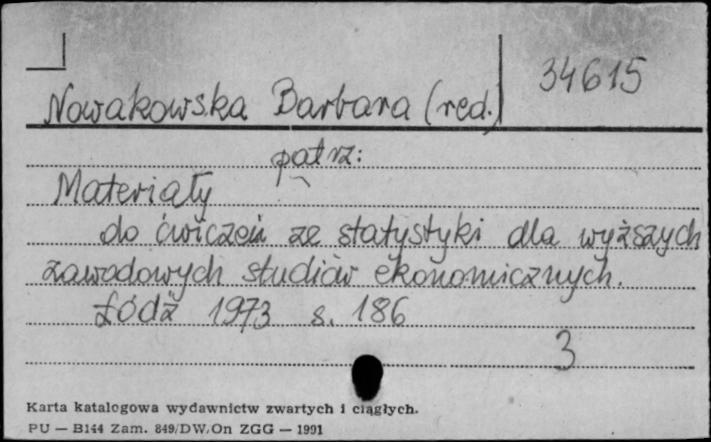 34615
Nowakowska Barbara (red.)
patrz:
Materiały
do ćwiczeń ze statystyki dla wyższych
zawodowych studiów ekonomicznych.
Łódź 1973 s. 186
3
Karta katalogowa wydawnictw zwartych i ciągłych.
PU — B144 Zam. 849/DW.On ZGG — 1991